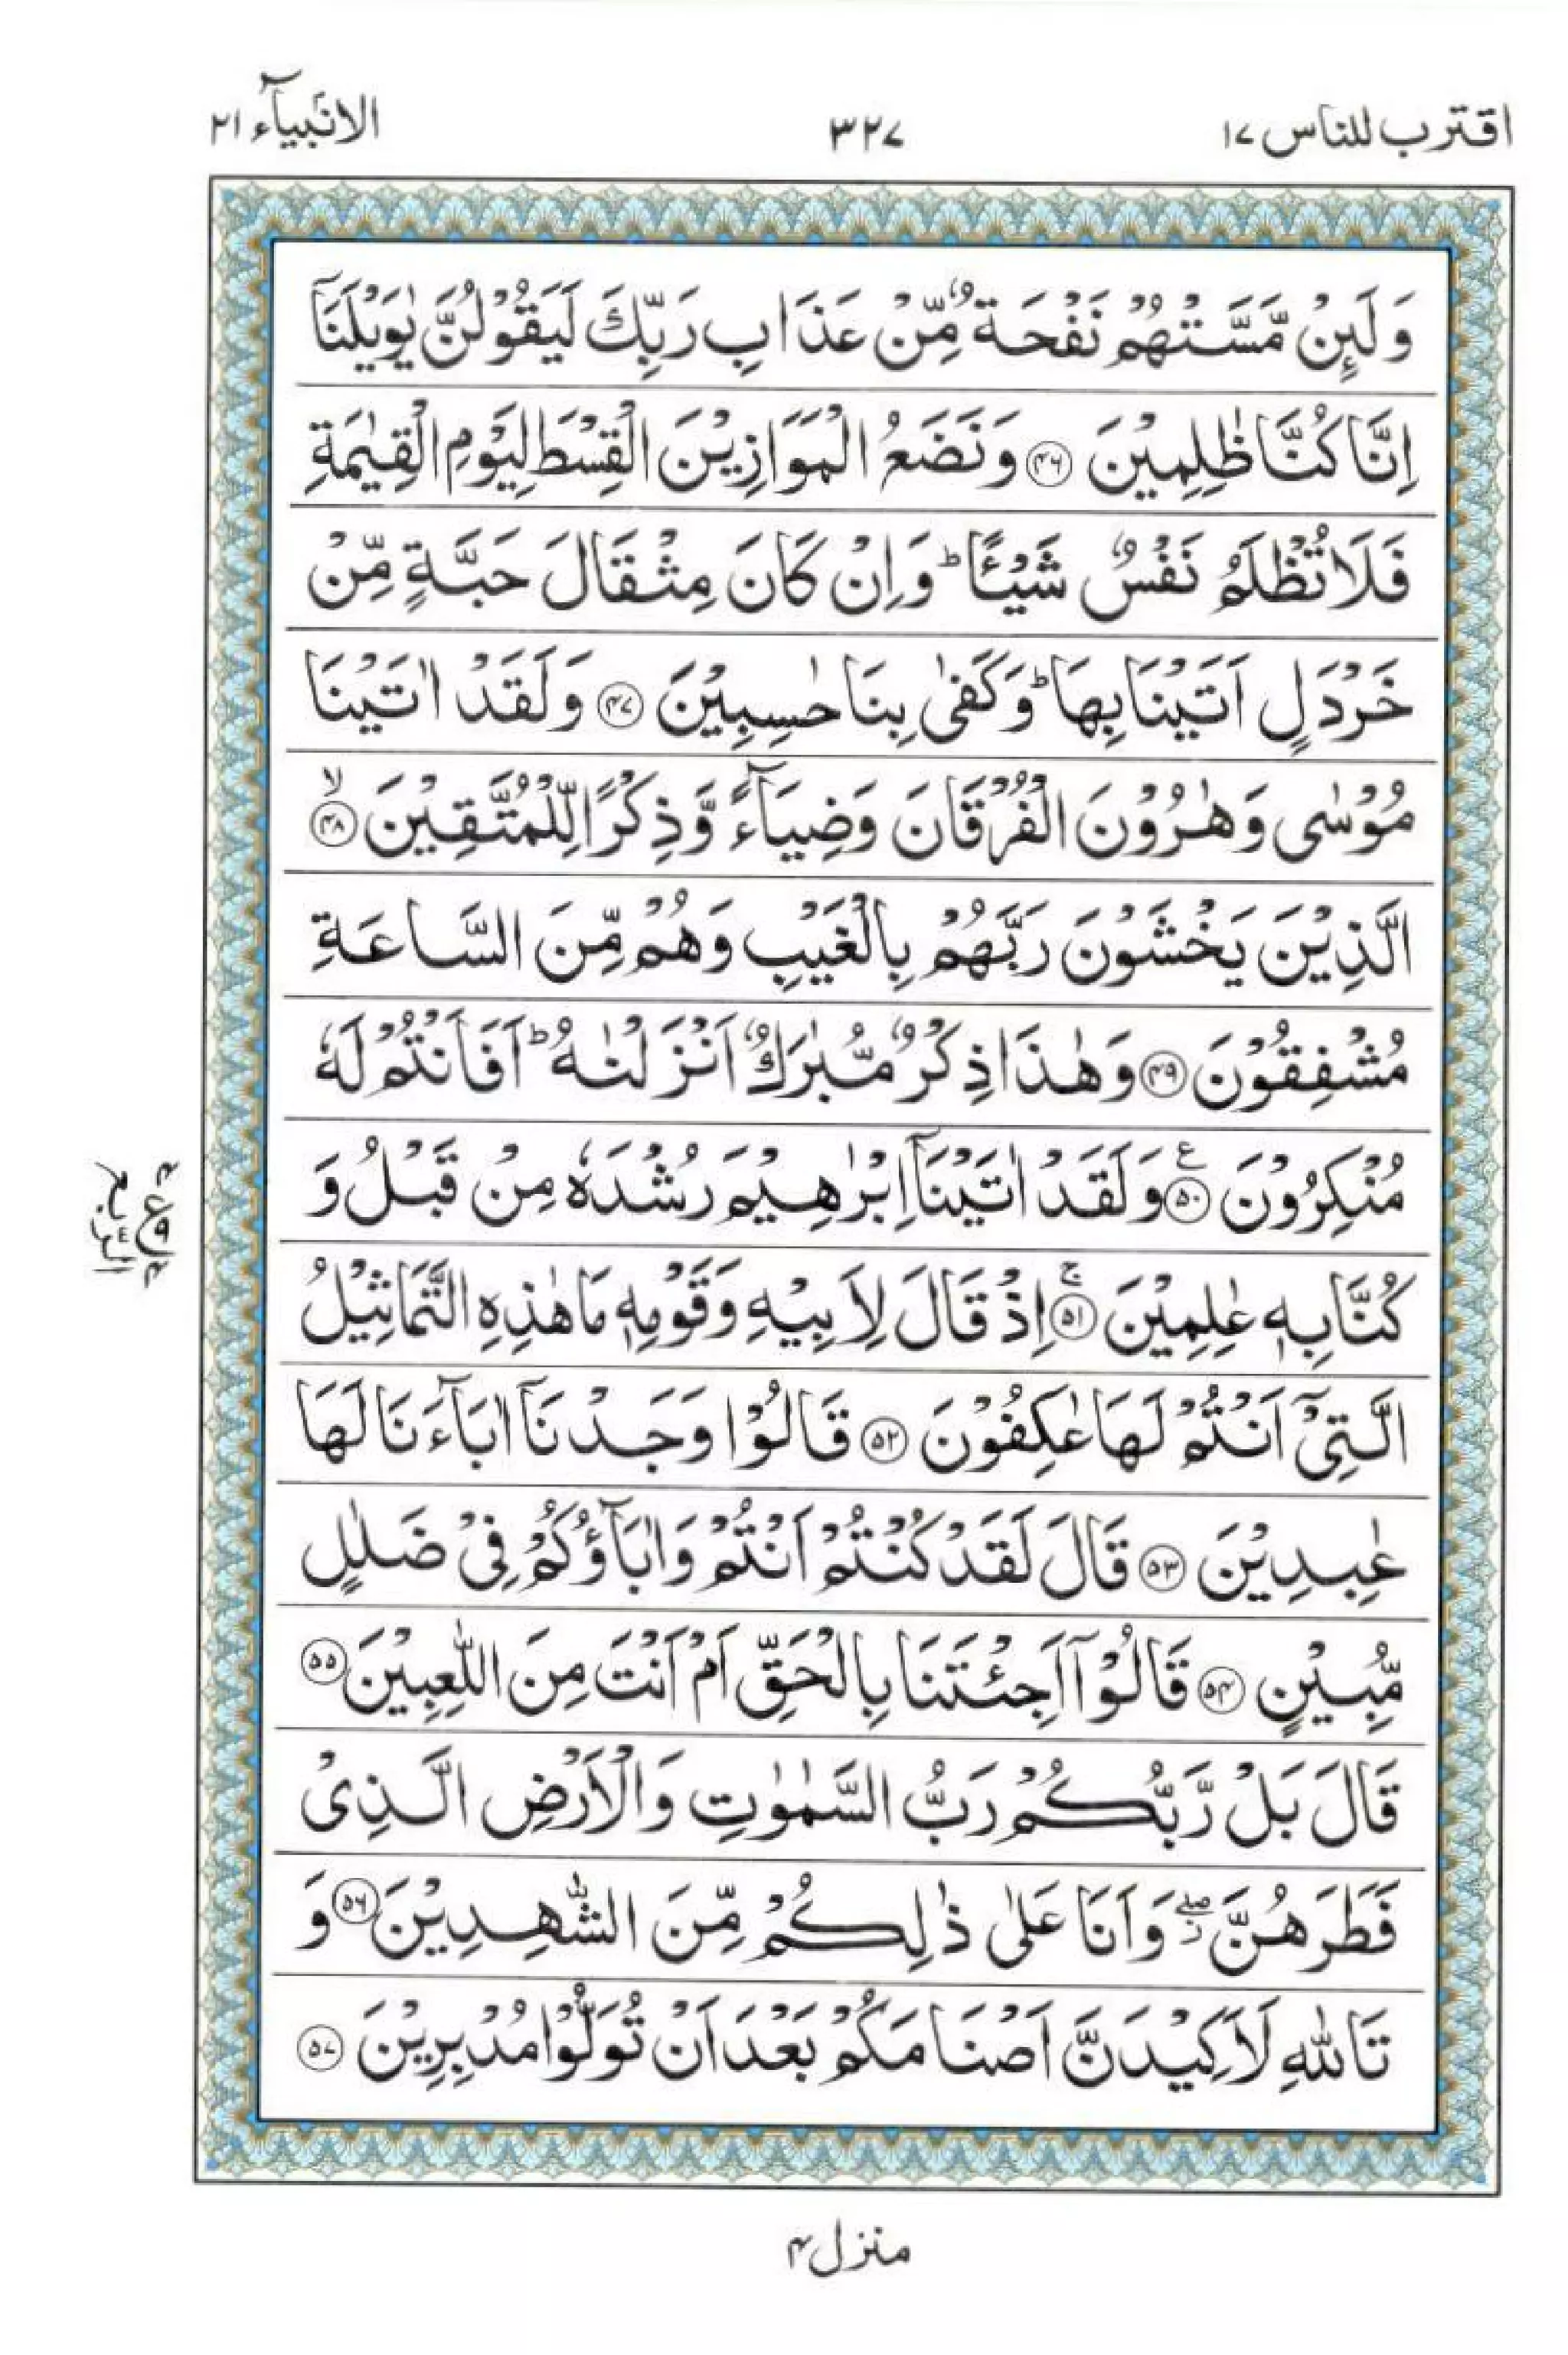 اقترب للناس ١٧
٣٢٧
الانبیآء ٢١
وَلَئِنْ مَّسَّتْهُمْ نَفْحَةٌ مِّنْ عَذَابِ رَبِّكَ لَيَقُوْلُنَّ يٰوَيْلَنَآ
اِنَّا كُنَّا ظٰلِمِيْنَ ﴿۴۶﴾ وَنَضَعُ الْمَوَازِيْنَ الْقِسْطَ لِيَوْمِ الْقِيٰمَةِ
فَلَا تُظْلَمُ نَفْسٌ شَيْـًٔا ؕ وَاِنْ كَانَ مِثْقَالَ حَبَّةٍ مِّنْ
خَرْدَلٍ اَتَيْنَا بِهَا ؕ وَكَفٰى بِنَا حٰسِبِيْنَ ﴿۴۷﴾ وَلَقَدْ اٰتَيْنَا
مُوْسٰى وَهٰرُوْنَ الْفُرْقَانَ وَضِيَآءً وَّذِكْرًا لِّلْمُتَّقِيْنَ ۙ﴿۴۸﴾
الَّذِيْنَ يَخْشَوْنَ رَبَّهُمْ بِالْغَيْبِ وَهُمْ مِّنَ السَّاعَةِ
مُشْفِقُوْنَ ﴿۴۹﴾ وَهٰذَا ذِكْرٌ مُّبٰرَكٌ اَنْزَلْنٰهُ ؕ اَفَاَنْتُمْ لَهٗ
مُنْكِرُوْنَ ﴿۵۰﴾ ع وَلَقَدْ اٰتَيْنَآ اِبْرٰهِيْمَ رُشْدَهٗ مِنْ قَبْلُ وَ
كُنَّا بِهٖ عٰلِمِيْنَ ۚ﴿۵۱﴾ اِذْ قَالَ لِاَبِيْهِ وَقَوْمِهٖ مَا هٰذِهِ التَّمَاثِيْلُ
الَّتِيْٓ اَنْتُمْ لَهَا عٰكِفُوْنَ ﴿۵۲﴾ قَالُوْا وَجَدْنَآ اٰبَآءَنَا لَهَا
عٰبِدِيْنَ ﴿۵۳﴾ قَالَ لَقَدْ كُنْتُمْ اَنْتُمْ وَاٰبَآؤُكُمْ فِيْ ضَلٰلٍ
مُّبِيْنٍ ﴿۵۴﴾ قَالُوْٓا اَجِئْتَنَا بِالْحَقِّ اَمْ اَنْتَ مِنَ اللّٰعِبِيْنَ ﴿۵۵﴾
قَالَ بَلْ رَّبُّكُمْ رَبُّ السَّمٰوٰتِ وَالْاَرْضِ الَّذِيْ
فَطَرَهُنَّ ۖ ز وَاَنَا عَلٰى ذٰلِكُمْ مِّنَ الشّٰهِدِيْنَ ﴿۵۶﴾ وَ
تَاللّٰهِ لَاَكِيْدَنَّ اَصْنَامَكُمْ بَعْدَ اَنْ تُوَلُّوْا مُدْبِرِيْنَ ﴿۵۷﴾
الرّبع
منزل ۴